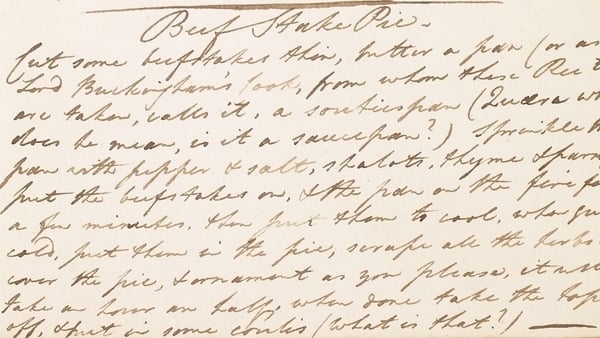 Beef Stake Pie.
Cut some beefstakes thin, butter a pan (or as
Lord Buckingham's Cook, from whom these Rects
are taken, calls it, a soutiespan (Quære wh
does he mean, is it a saucepan?) Sprinkle th
pan with pepper & salt, shalots, thyme & pars
put the beefstakes on, & the pan on the fire fo
a few minutes, then put them to cool, when qu
cold, put them in the pie, scrape all the herbs
cover the pie, & ornament as you please, it will
take an hour an half, when done take the top
off, & put in some coulis (what is that?)